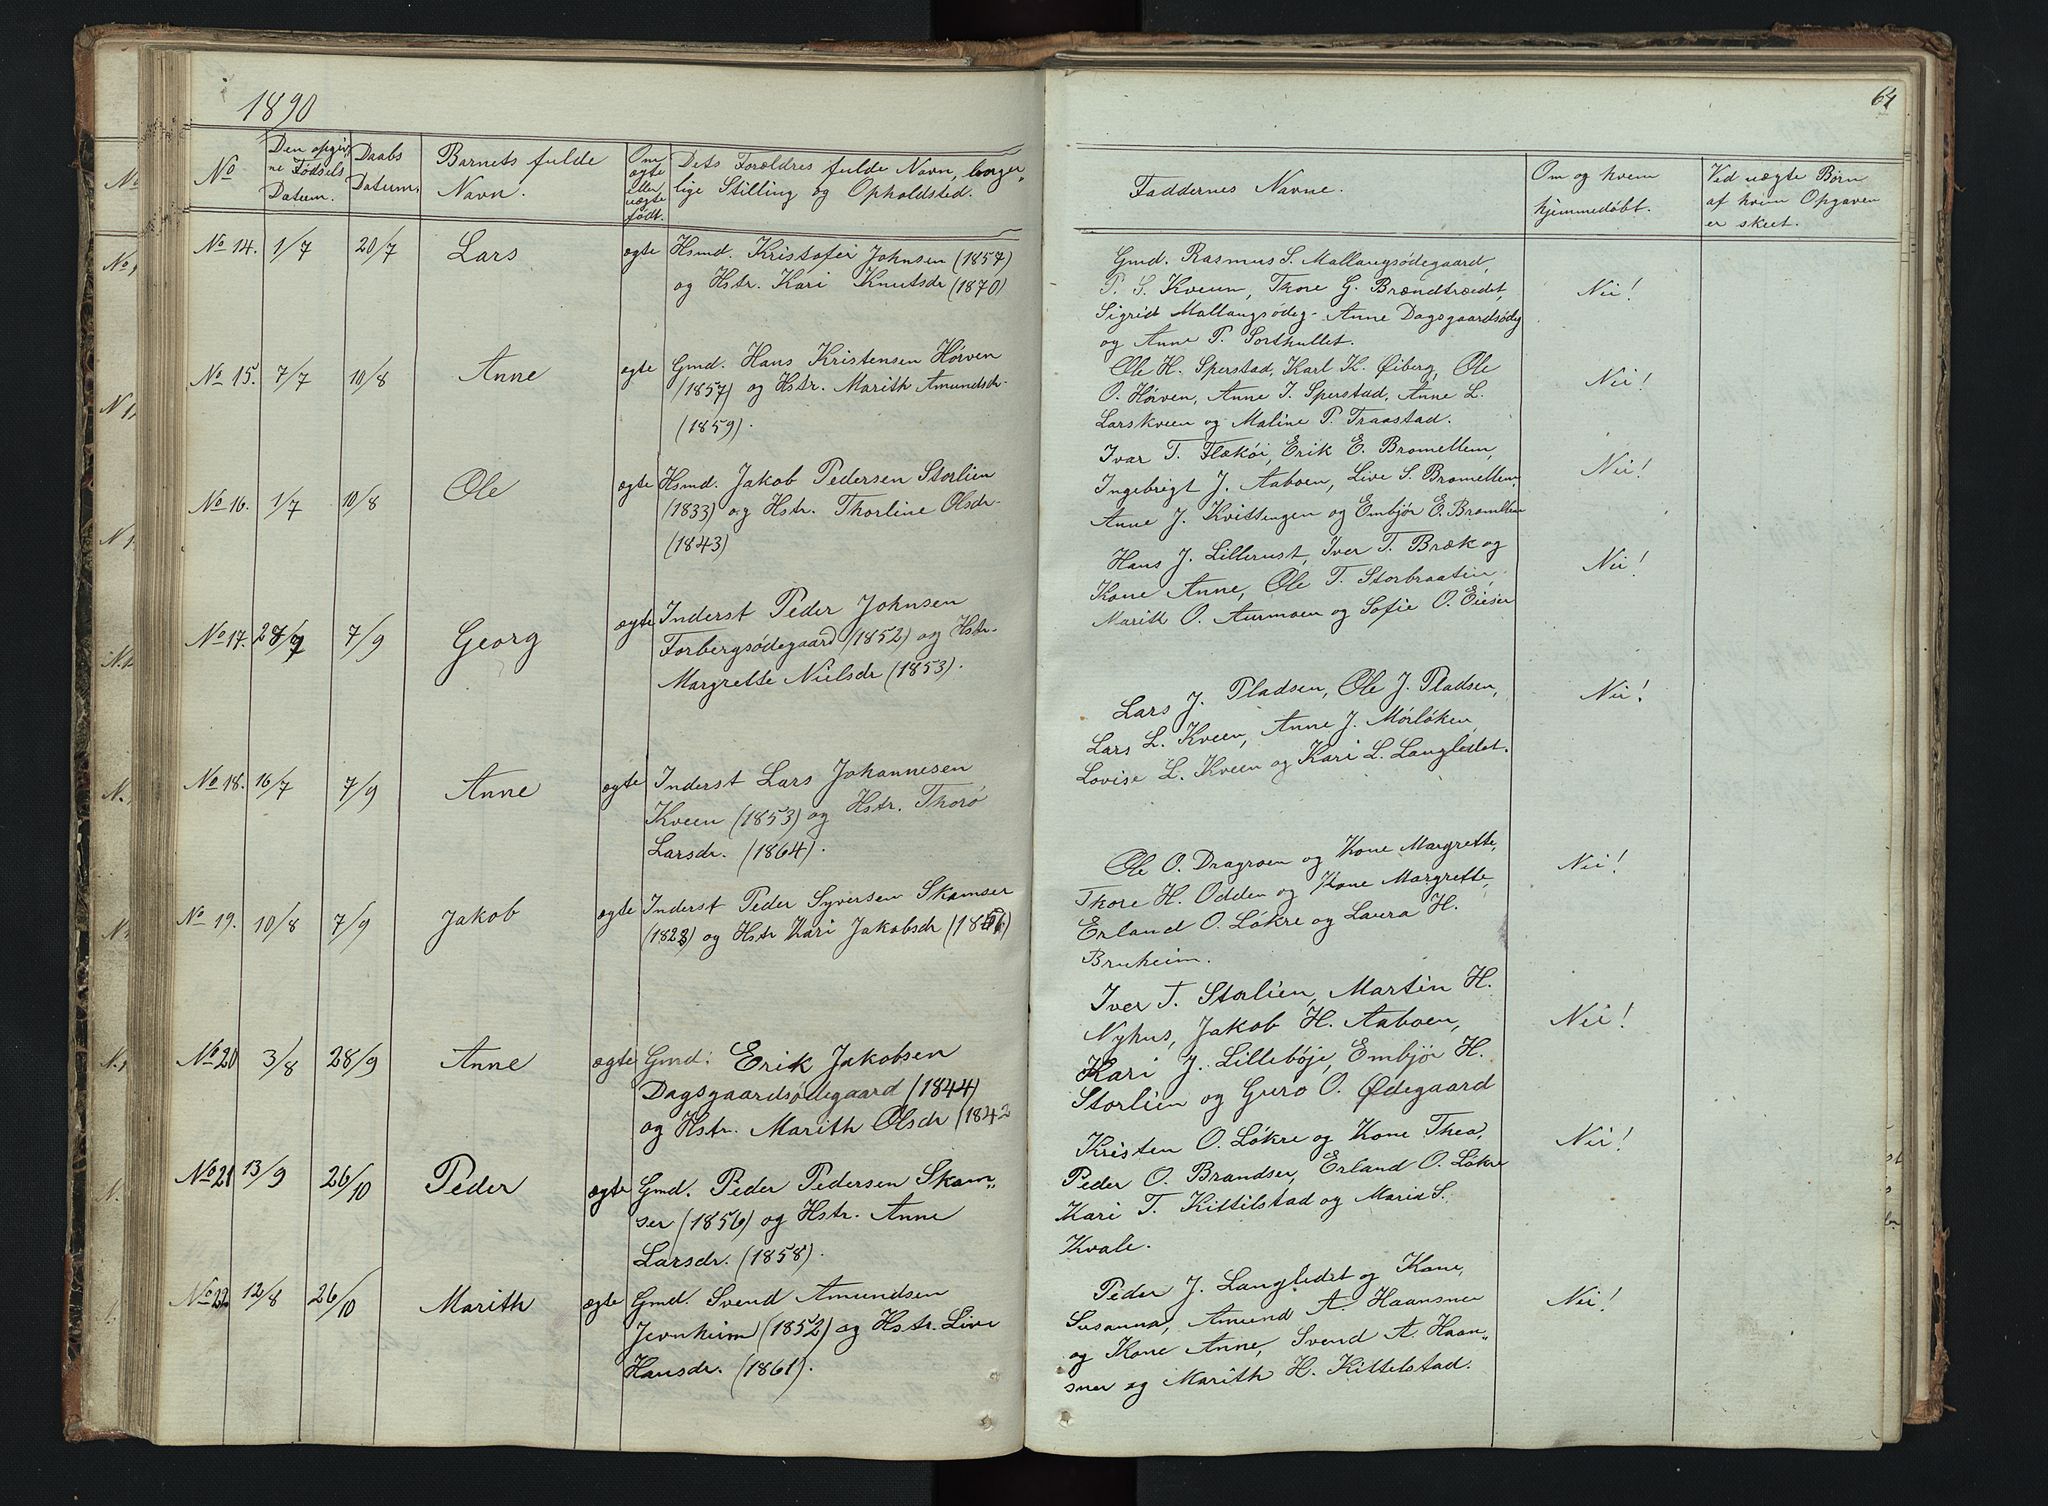 1890
No
Den opgiv,
ne Fødsels
Datum.
Daabs
Datum.
Barnets fulde
Navn.
Om
ægte
eller
uægte
født.
Dets Forældres fulde Navn, borger„
lige Stilling og Opholdsted.
No 14. 1/7 20/7 Lars ægte Hsmd. Kristofer Johnsen (1857)
og Hstr. Kari Knutsdr (1870)
No 15. 7/7 10/8 Anne ægte Gmd. Hans Kristensen Hørven
(1857) og Hstr. Marith Amundsdr.
(1859).
No 16. 1/7 10/8 Ole ægte Hsmd. Jakob Pedersen Storlien
(1833) og Hstr. Thorline Olsdr.
(1843)
No 17. 28/7 7/9 Georg ægte Inderst Peder Johnsen
Forbergsødegaard (1852) og Hstr.
Margrethe Nielsdr (1853).
No 18. 16/7 7/9 Anne ægte Inderst Lars Johannesen
Kveen (1853) og Hstr. Thorø
Larsdr. (1864).
No 19. 10/8 7/9 Jakob ægte Inderst Peder Syversen Skamser
(1823) og Hstr Kari Jakobsdr
No 20 3/8 28/9 Anne ægte Gmd. Erik Jakobsen
Dagsgaardsødegaard (1844)
og Hstr. Marith Olsdr (1842
No 21 13/9 26/10 Peder ægte Gmd. Peder Pedersen Skam„
ser (1856) og Hstr. Anne
Larsdr. (1858).
No 22 12/8 26/10 Marith ægte Gmd. Svend Amundsen
Jevnheim (1852) og Hstr. Live
Hansdr. (1861).
64
Faddernes Navne.
Om og hvem
hjemmedøbt.
Ved uægte Børn
af hvem Opgaven
er skeet.
Gmd. Rasmus S. Mallangsødegaard,
P. S. Kveen, Thore G. Brændtrædet, Nei!
Sigrid Mallangsødeg. Anne Dagsgaardsødeg
og Anne P. Sorthullet.
Ole H. Sperstad, Karl K. Øiberg, Ole
O. Hørven, Anne I. Sperstad, Anne L. Nei!
Larskveen og Maline P. Traastad.
Ivar T. Flækøi, Erik E. Bromellem,
Ingebrigt J. Aaboen, Live S. Bromellem, Nei!
Anne J. Kvittingen og Embjør E. Bromellem
Hans J. Lillerust, Iver T. Bræk og
Kone Anne, Ole T. Storbraaten, Nei!
Marith O. Aurmoen og Sofie O. Eieser
Lars J. Pladsen, Ole J. Pladsen,
Lars L. Kveen, Anne J. Mørløken, Nei!
Lovise L. Kveen og Kari L. Langledet.
Ole O. Dragroen og Kone Margrethe,
Thore H. Odden og Kone Margrethe, Nei!
Erland O. Løkre og Laura H.
Bruheim.
Iver T. Storlien, Martin H.
Nyhus, Jakob H. Aaboen, Nei!
Kari J. Lillebøje, Embjør H.
Storlien og Guro O. Ødegaard
Kristen O. Løkre og Kone Thea,
Peder O. Brandser, Erland O. Løkre Nei!
Kari T. Kittilstad og Maria S.
Kvale.
Peder J. Langledet og Kone,
Susanna, Amund A. Haansner Nei!
og Kone Anne, Svend A. Haan„
sner og Marith H. Kittelstad.